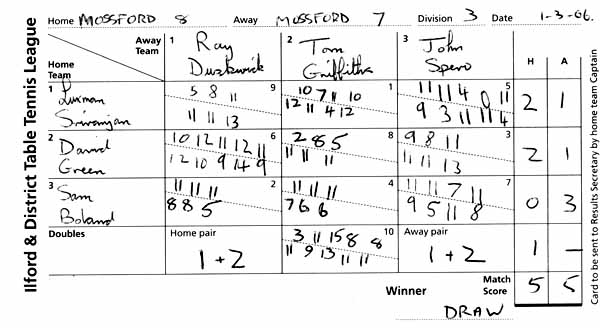 Ilford & District Table Tennis League
Home MOSSFORD 8 Away MOSSFORD 7 Division 3 Date 1-3-06.
Away Team
Home Team
1 Ray
2 Tom Griffiths
3 John Spero
H A
1
5 8 11 9
11 11 13
10 7 11 10 1
12 11 4 12
11 11 4 0 11 5
9 3 11 11 4
2 1
2 David Green
10 12 11 12 11 6
12 10 9 14 9
2 8 5 8
11 11 11
9 8 11 3
11 11 13
2 1
3 Sam Boland
11 11 11 2
8 8 5
11 11 11 4
7 6 6
11 11 7 11 7
9 5 11 8
0 3
Doubles
Home pair
1 + 2
3 11 15 8 8 10
11 9 13 11 11
Away pair
1 + 2
1 –
Winner
Match Score
5 5
DRAW
Card to be sent to Results Secretary by home team Captain